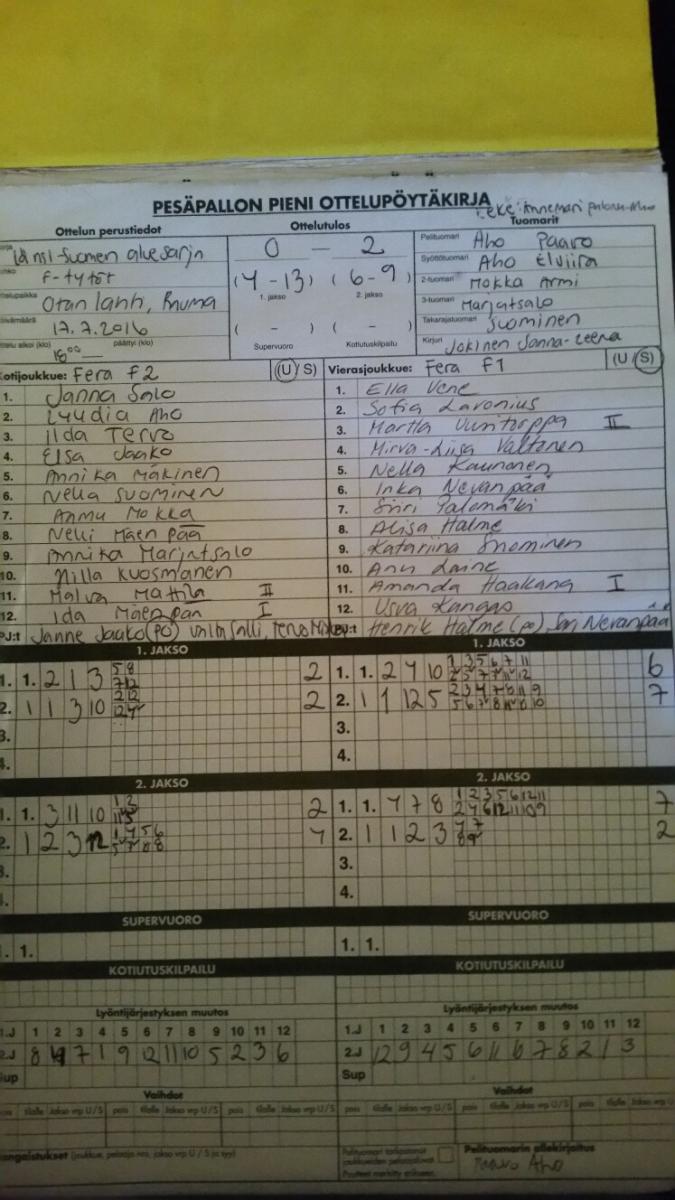 PESÄPALLON PIENI OTTELUPÖYTÄKIRJA
Ottelun perustiedot
Ottelutulos
Tuomarit
Länsi-Suomen aluesarja
F-tytöt
Otanlahti, Rauma
17.7.2016
päättyi (klo)
18⁰⁰
0 – 2
(4 – 13) (6 – 9)
1. jakso 2. jakso
( – ) ( – )
Supervuoro Kotiutuskilpailu
Pelituomari Aho Paavo
Syöttötuomari Aho Elviira
2-tuomari Mokka Armi
3-tuomari Marjatsalo
Takarajatuomari Suominen
Kirjuri Jokinen Janna-Leena
Kotijoukkue: Fera F2 (U/S)
1. Janna Salo
2. Lyydia Aho
3. Iida Tervo
4. Elsa Jaako
5. Annika Mäkinen
6. Nella Suominen
7. Anmu Mokka
8. Nelli Mäenpää
9. Annika Marjatsalo
10. Milla Kuosmanen
11. Malva Mattila II
12. Ida Mäenpää I
PJ:t Janne Jaako (PO)
Vierasjoukkue: Fera F1 (U/S)
1. Ella Vene
2. Sofia Lavonius
3. Martta Uusitorppa II
4. Mirva-Liisa Valtonen
5. Nella Kaunonen
6. Inka Nevanpää
7. Siiri Palomäki
8. Alisa Halme
9. Katariina Suominen
10. Anu Laine
11. Amanda Haakana I
12. Usva Kangas
PJ:t Henrik Halme (po), Sari Nevanpää
1. JAKSO
1. 1. 2 1 3 5 8 2
7 12
2. 1 1 3 10 2 12 2
3.
4.
1. JAKSO
1. 1. 2 4 10 1 3 5 6 7 11 6
2. 1 1 12 5 2 3 4 7 10 11 9 7
3.
4.
2. JAKSO
1. 1. 3 11 10 1 2 2
2. 1 2 3 12 1 4 5 6 4
3.
4.
2. JAKSO
1. 1. 4 7 8 1 2 3 5 6 12 11 7
2 4 6 12 11 10 9
2. 1 1 2 3 7 7 2
3.
4.
SUPERVUORO
1. 1.
SUPERVUORO
1. 1.
KOTIUTUSKILPAILU
KOTIUTUSKILPAILU
Lyöntijärjestyksen muutos
1.J 1 2 3 4 5 6 7 8 9 10 11 12
2.J 8 4 7 1 9 12 11 10 5 2 3 6
Sup
Lyöntijärjestyksen muutos
1.J 1 2 3 4 5 6 7 8 9 10 11 12
2.J 12 9 4 5 6 11 6 7 8 2 1 3
Sup
Vaihdot
pois tilalle Jakso vrp U/S pois tilalle Jakso vrp U/S pois tilalle Jakso vrp U/S
Vaihdot
pois tilalle Jakso vrp U/S pois tilalle Jakso vrp U/S pois tilalle Jakso vrp U/S
Rangaistukset (joukkue, pelaaja nro, jakso vrp U / S ja syy)
Pelituomari tarkastanut
joukkueiden pelaajaluvat
Puutteet merkitty erikseen.
Pelituomarin allekirjoitus
Paavo Aho